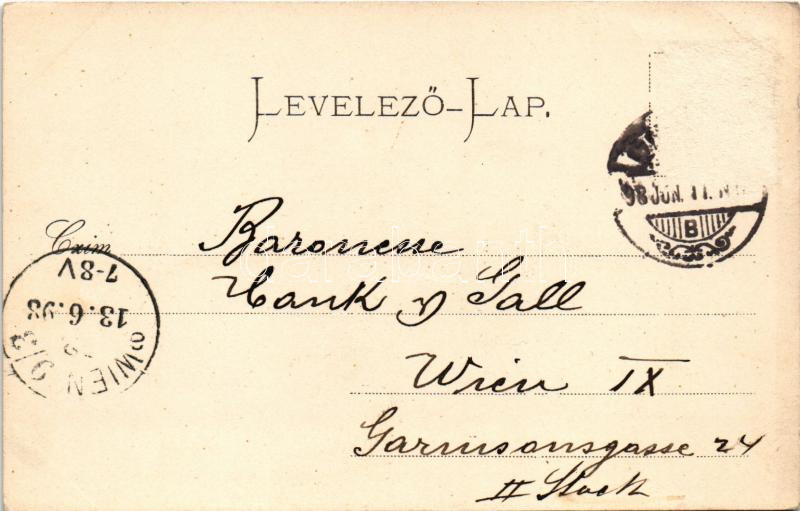 LEVELEZŐ-LAP.
98 JUN. 11.
B
Czim
Baronesse
Gall
Wien IX
Garnisonsgasse 24
II Stock
WIEN 9/3
13.6.98
7-8V